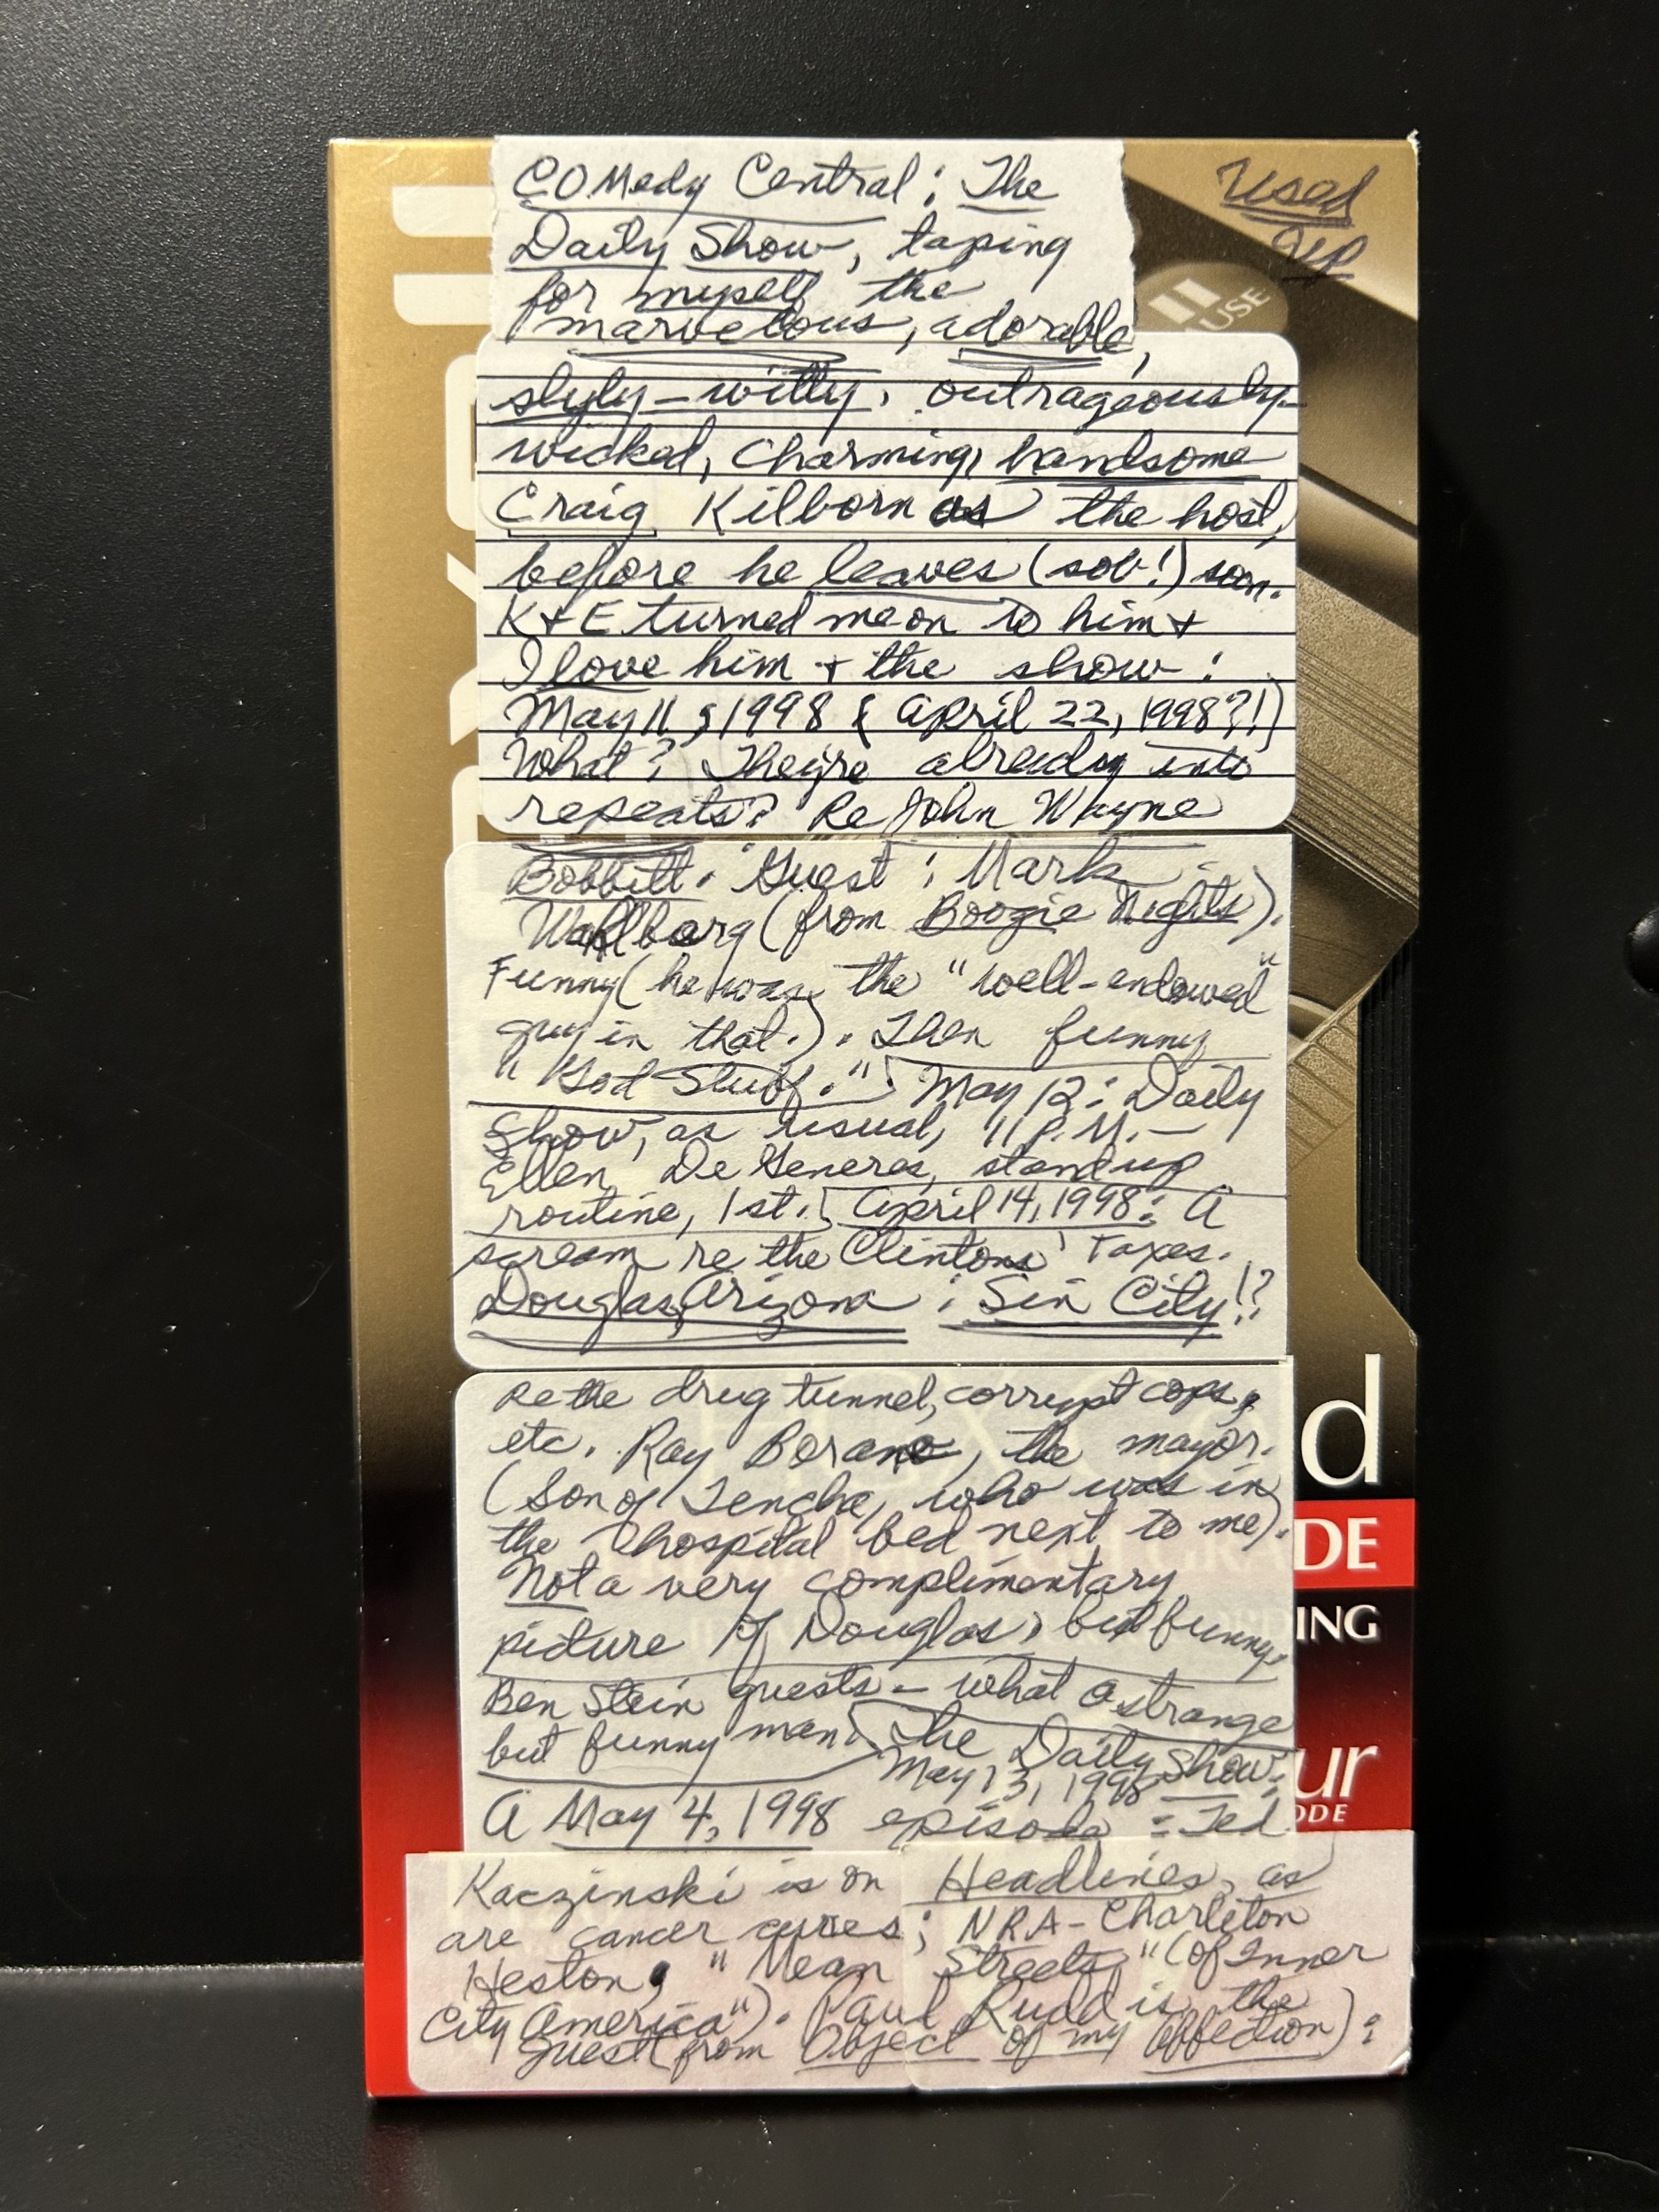 Comedy Central: The
Daily Show, taping
for myself the
marvelous, adorable,
slyly-witty, outrageously-
wicked, charming, handsome
Craig Kilborn as the host,
before he leaves (sob!) soon.
K+E turned me on to him +
I love him + the show:
May 11, 1998 (April 22, 1998?!)
What? They're already into
repeats? Re John Wayne
Bobbitt. Guest: Mark
Wahlberg (from Boogie Nights).
Funny (he was the "well-endowed"
guy in that.). Then funny
"God Stuff." May 12: Daily
Show, as usual, 11 P.M. —
Ellen De Generes, standup
routine, 1st. April 14, 1998: A
scream re the Clintons' Taxes.
Douglas, Arizona: Sin City!?
Re the drug tunnel, corrupt cops,
etc. Ray Borane, the mayor.
(Son of Tencha, who was in
the hospital bed next to me).
Not a very complimentary
picture of Douglas, but funny.
Ben Stein guests - what a strange
but funny man. The Daily Show:
May 13, 1998
A May 4, 1998 episode: Ted
Kaczinski is on Headlines, as
are cancer cures; NRA-Charlton
Heston, "Mean Streets" (of Inner
City America"). Paul Rudd is the
guest (from Object of my Affection):
Used
Up
II
USE
d
DE
ING
ur
ODE